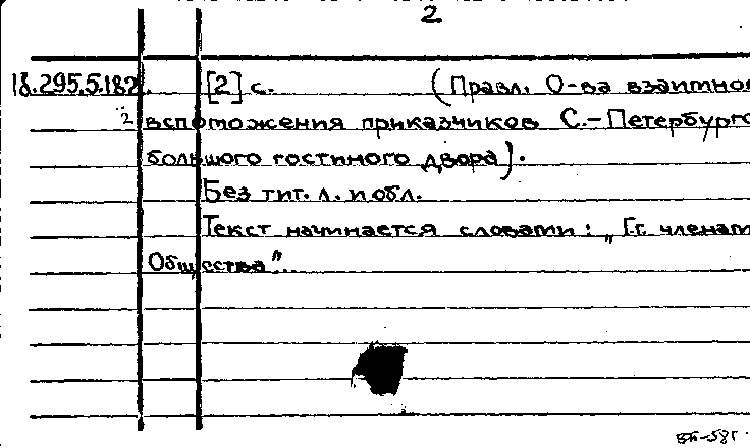 2
18.295.5.182 [2] с. (Правл. О-ва взаимно
2 вспоможения приказчиков С.-Петербургс
большого гостиного двора).
Без тит. л. и обл.
Текст начинается словами: „Гг. членам
Общества".